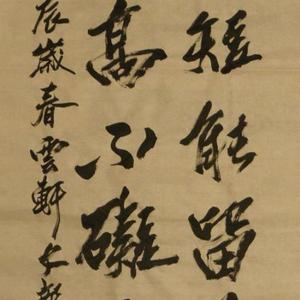 短能留
高不礙
辰歲春雲軒